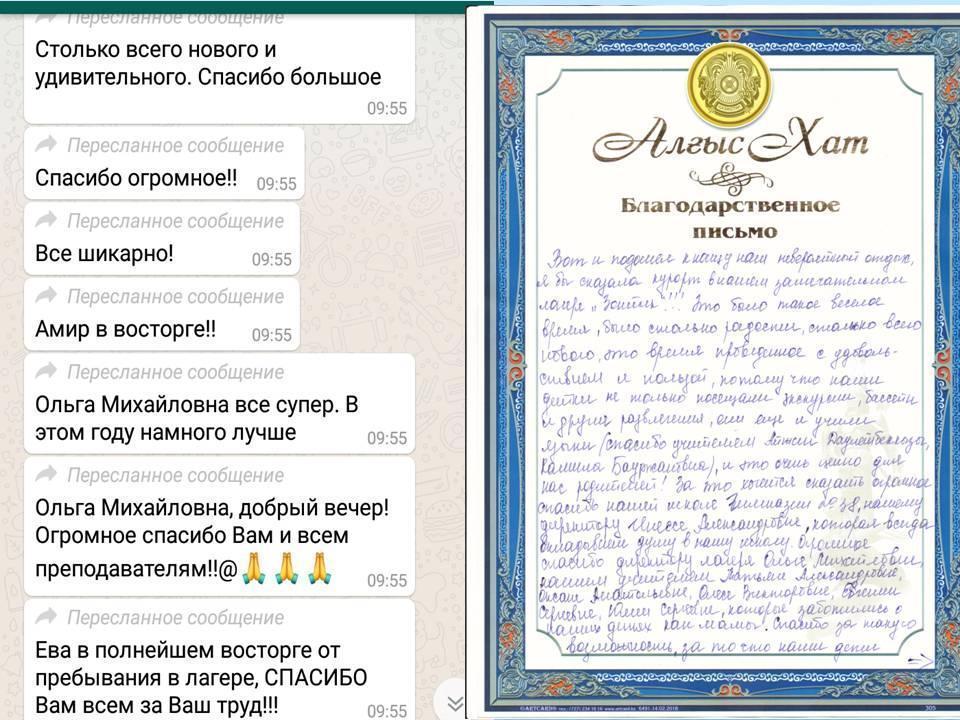 Пересланное сообщение
Столько всего нового и
удивительного. Спасибо большое
09:55
Пересланное сообщение
Спасибо огромное!! 09:55
Пересланное сообщение
Все шикарно! 09:55
Пересланное сообщение
Амир в восторге!! 09:55
Пересланное сообщение
Ольга Михайловна все супер. В
этом году намного лучше 09:55
Пересланное сообщение
Ольга Михайловна, добрый вечер!
Огромное спасибо Вам и всем
преподавателям!!@🙏🙏🙏 09:55
Пересланное сообщение
Ева в полнейшем восторге от
пребывания в лагере, СПАСИБО
Вам всем за Ваш труд!!! 09:55
Алғыс Хат
Благодарственное
письмо
Вот и подошел к концу наш невероятный отдых,
я бы сказала курорт в нашем замечательном
лагере "Зонтик"!!! Это было такое веселое
время, было столько радости, столько всего
нового, это время проведенное с удоволь-
ствием и пользой, потому что наши
детки не только посещали экскурсии, бассейн
и другие развлечения, они еще и учили
языки (спасибо учителям
и это очень для
нас родителей! За это хочется сказать огромное
спасибо нашей школе Гимназии нашему
директору Александровне, которая всегда
вкладывает душу в нашу школу. Огромное
спасибо директору лагеря Ольге Михайловне,
нашим учителям Татьяне Александровне,
Оксане Анатольевне, Олесе Викторовне, Евгении
Сергеевне, Юлии Сергеевне, которые заботились о
наших детях как мамы. Спасибо за такую
возможность, за то что наши дети
©ARTCARD® тел.: (727) 234 16 16 www.artcard.kz 6491-14.02.2018 305